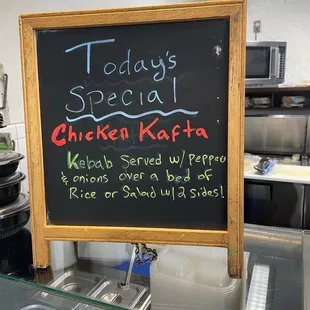 Today's
Special
Chicken Kafta
Kebab Served w/ pepper
& onions over a bed of
Rice or Salad w/ 2 sides!